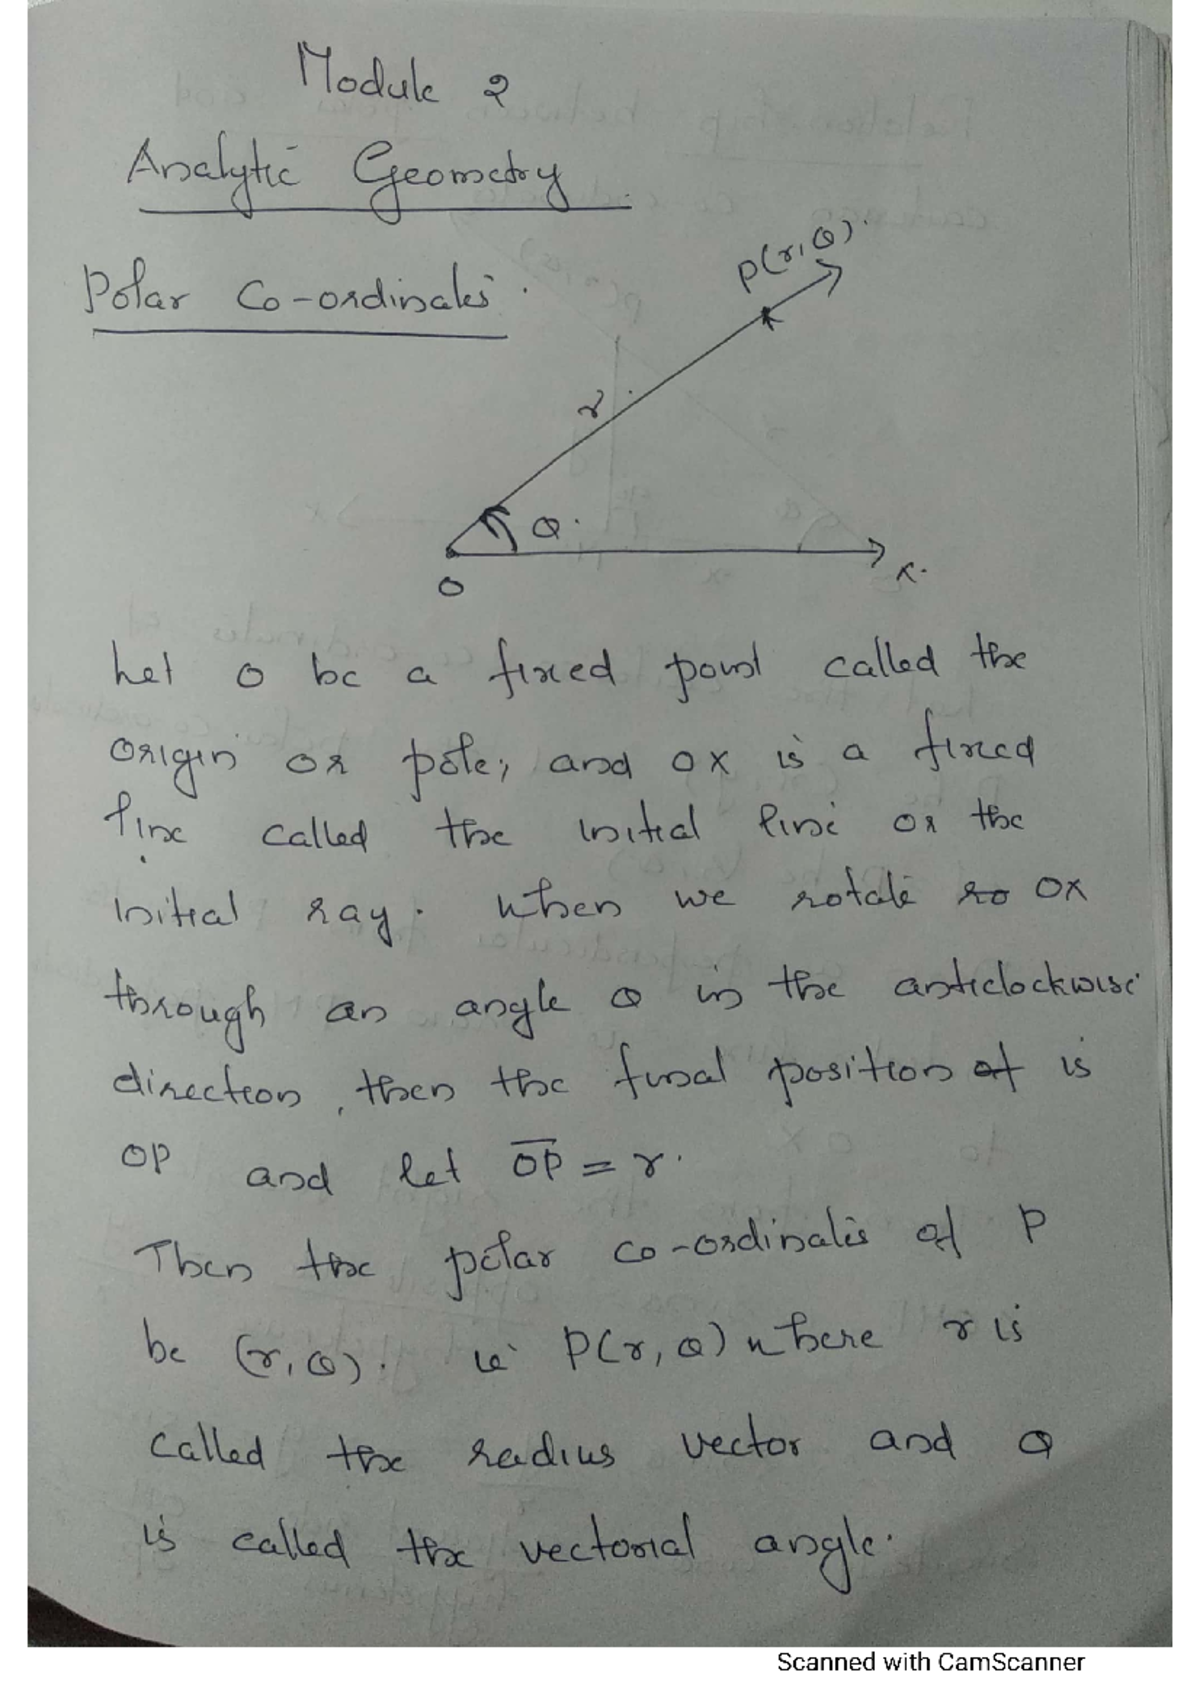 Module 2
Analytic Geometry
Polar Co-ordinates.
P(r, θ).
r
θ.
O
x.
Let O be a fixed point called the
origin or pole, and OX is a fixed
line called the initial line or the
initial ray. When we rotate ro OX
through an angle θ in the anticlockwise
direction, then the final position of is
OP and let OP = r.
Then the polar co-ordinates of P
be (r, θ). ie P(r, θ) where r is
called the radius vector and θ
is called the vectorial angle.
Scanned with CamScanner